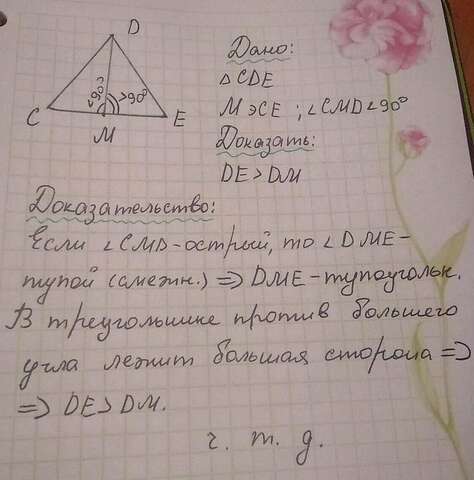 D
<90° >90°
C
M
E
Дано:
△CDE
M∋CE ; ∠CMD<90°
Доказать:
DE>DM
Доказательство:
Если ∠CMD-острый, то ∠DME-
тупой (смежн.) => DME-тупоугольн.
В треугольнике против большего
угла лежит большая сторона =>
=> DE>DM.
ч. т. д.